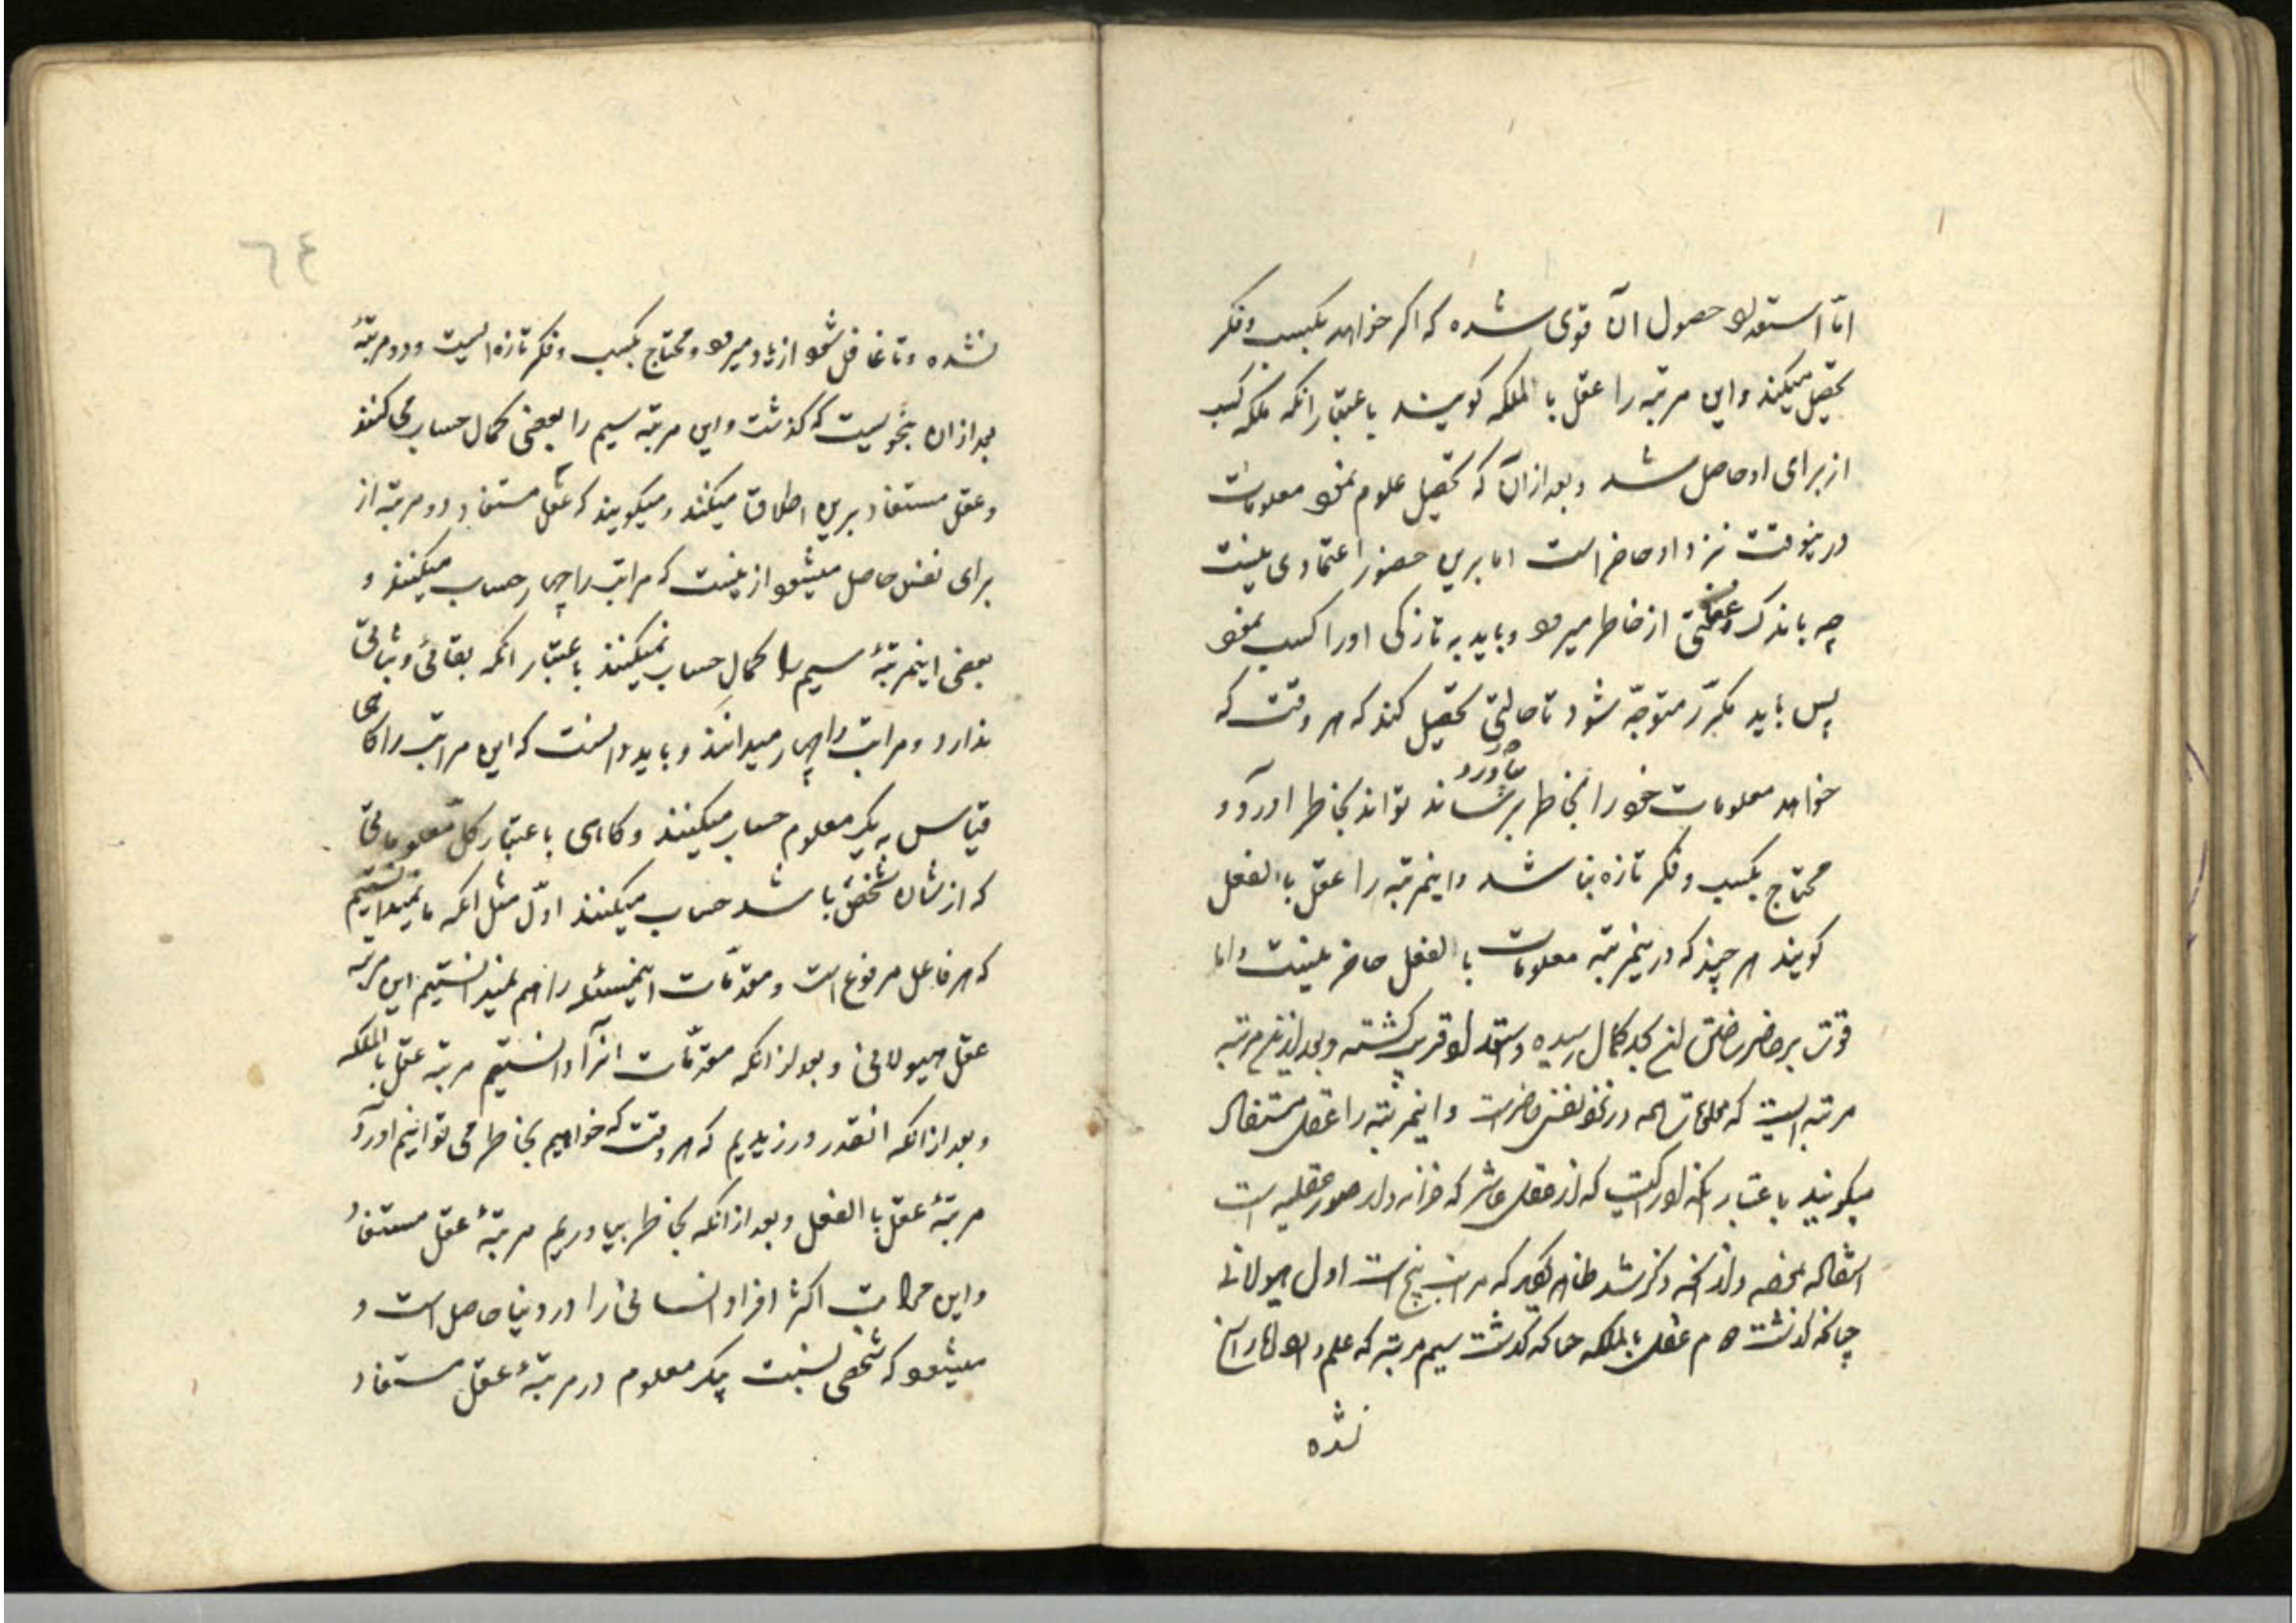 اما استعداد حصول آن قوی شده که اگر خواهد بکسب و فکر
تحصیل میکند و این مرتبه را عقل بالملکه گویند باعتبار انکه ملکه کسب
از برای او حاصل شد و بعد از آن که تحصیل علوم نمود معلومات
درینوقت نزد او حاضر است اما برین حضور اعتمادی نیست
چه باندک غفلتی از خاطر میرود و باید به تازکی او را کسب نمود
پس باید مکرّر متوجّه شود تا حالتی تحصیل کند که هر وقت که
خواهد معلومات خود را بخاطر تواند بخاطر اورد و
محتاج بکسب و فکر تازه نباشد و اینمرتبه را عقل بالفعل
کویند هر چند که درینمرتبه معلومات بالفعل حاضر نیست و اما
قوت بر حاضر ساختن بحد کمال رسیده و استعداد قریب کشته و بعد ازین مرتبه
مرتبه ایست که معلومات همه در نزد نفس حاضر است و اینمرتبه را عقل مستفاد
میکویند باعتبار انکه از عقل عاشر که خزانه دار صور عقلیه است
استفاده نموده و از انچه ذکر شد ظاهر کردید که مراتب پنج است اول هیولانی
چنانکه کذشت دوم عقل بالملکه چنانکه کذشت سیم مرتبه که علم
نشده
٦٤
نشده و تا غافل شود از یاد میرود و محتاج بکسب و فکر تازه ایست و دو مرتبهٔ
بعد از ان بنحویست که کذشت و این مرتبه سیم را بعضی کمال حساب می کنند
و عقل مستفاد برین اطلاق میکنند و میکویند که عقل مستفاد دو مرتبه از
برای نفس حاصل میشود ازینست که مراتب را چهار حساب میکنند و
بعضی اینمرتبهٔ سیم را کمال حساب نمیکنند باعتبار انکه بقائی و ثباتی
ندارد و مراتب را چهار میدانند و باید دانست که این مراتب را کاهی
قیاس به یک معلوم حساب میکنند و کاهی باعتبار کل معلوماتی
که از شان شخص باشد حساب میکنند اوّل مثل انکه ما نمیدانستیم
که هر فاعل مرفوع است و مقدّمات اینمسئله را هم نمیدانستیم این مرتبه
عقل هیولانی و بعد از انکه مقدّمات انرا دانستیم مرتبه عقل بالملکه
و بعد از انکه انقدر ورزیدیم که هر وقت که خواهیم بخاطر می توانیم اورد
مرتبهٔ عقل بالفعل و بعد از انکه بخاطر بیاوریم مرتبهٔ عقل مستفاد
و این مراتب اکثر افراد انسانی را در دنیا حاصل است و
میشود که شخصی نسبت بیک معلوم در مرتبهٔ عقل مستفاد